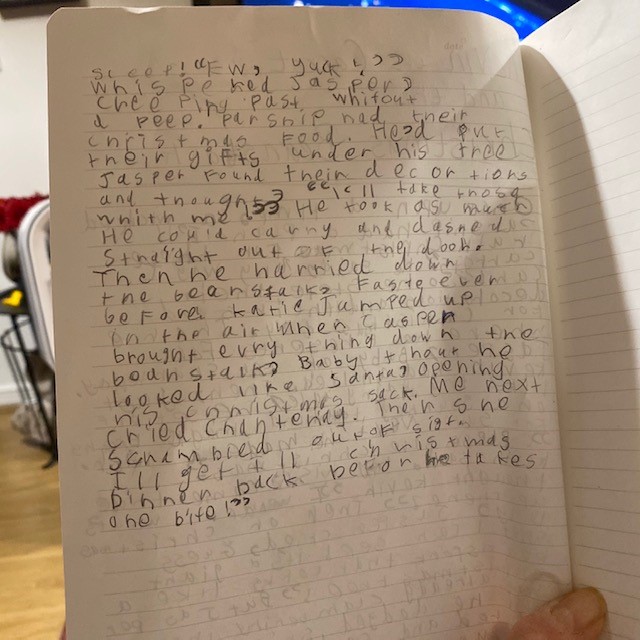 sleep! "Ew, yuck!"
whispened Jasper,
creeping past whitout
a peep. parsnip had their
christmas food. He'd put
their gifts under his tree
Jasper found their decortions
and thought, "I'll take those
whith me!" He took as much
He could carry and dashed
straight out of the door.
Then he harried down
the beanstalk, faster even
before. Katie Jumped up
in the air when casper
brought evry thing down the
beanstalk, Baby thour he
looked like Santa, opening
his christmas sack. Me next
Cried Chantenay. Then she
scrambled out of sigt.
I'll get christmas
Dinner back before he takes
one bite!"